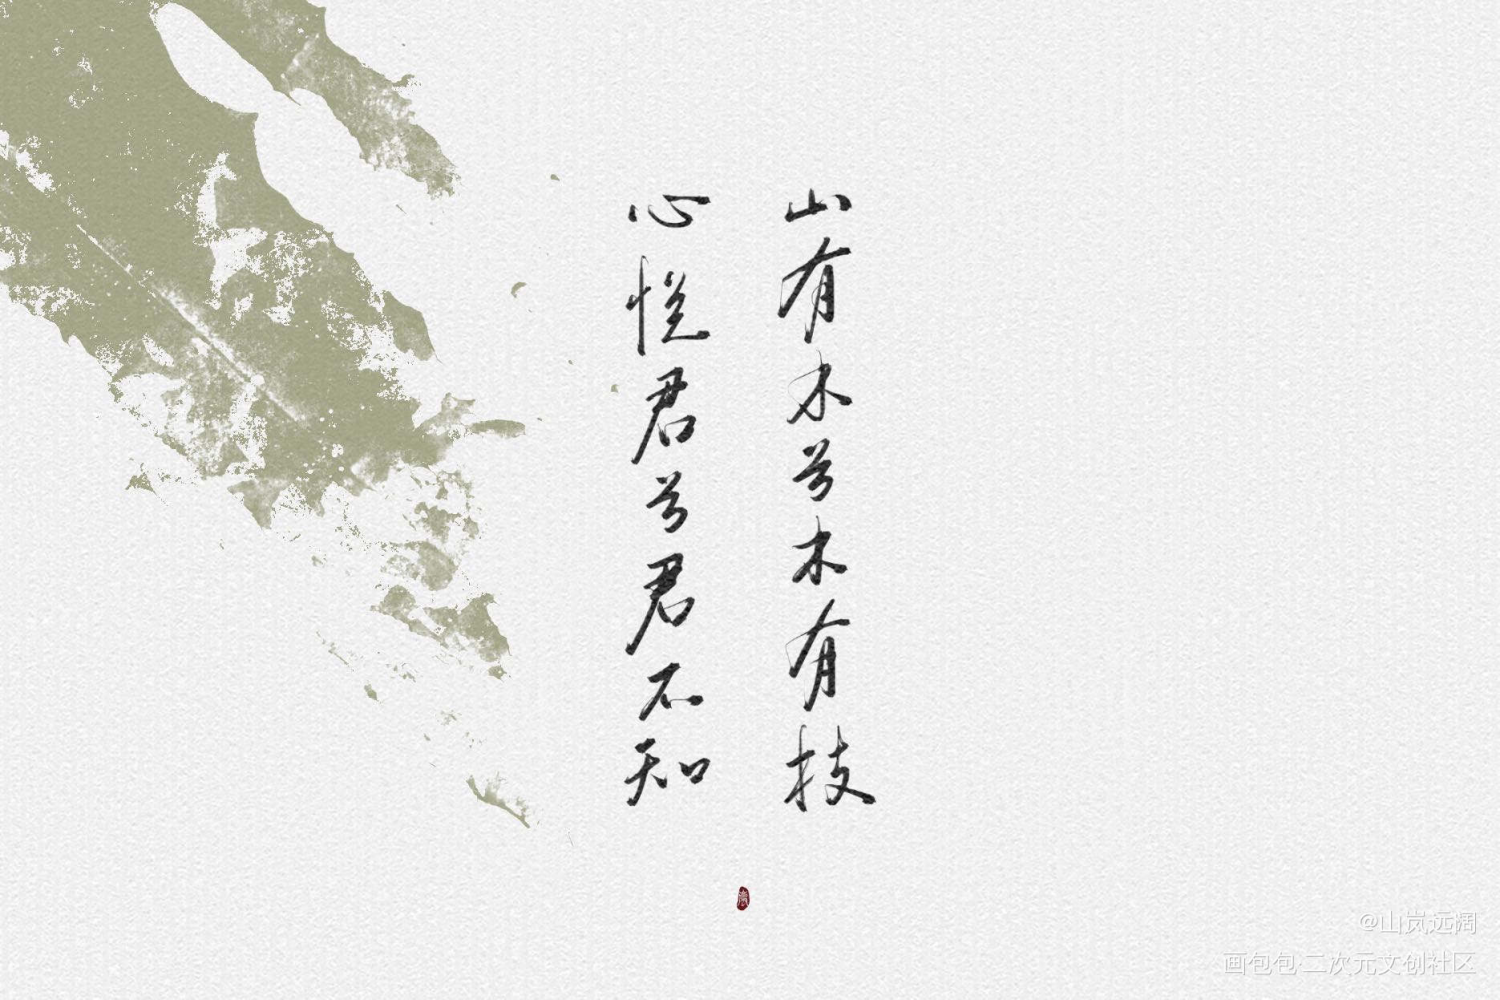 山有木兮木有技
心悦君兮君不知
@山岚远阔
画包包·二次元文创社区